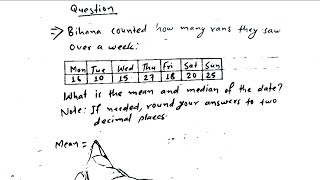 Question
⇒ Bihana counted how many rans they saw
over a week:
Mon Tue Wed Thu Fri Sat Sun
16 10 15 27 18 20 25
What is the mean and median of the date?
Note: If needed, round your answers to two
decimal places
Mean =